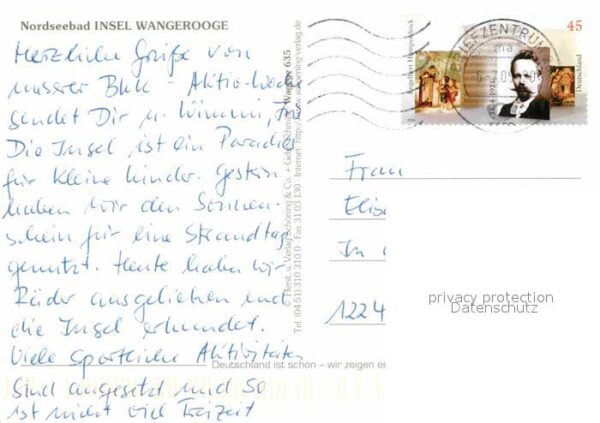 Nordseebad INSEL WANGEROOGE
Herzliche Grüße von
unserer BKK - Aktiv-Woche
sendet Dir u. Wimmi,
Die Insel ist ein Paradies
für kleine Kinder. Gestern
haben wir den Sonnen-
schein für eine Strandtag
genutzt. Heute haben wir
Räder ausgeliehen und
die Insel erkundet.
Viele sportliche Aktivitäten
sind angesetzt und so
ist nicht viel Freizeit
Deutschland ist schön – wir zeigen es
© Herst. u. Verlag Schöning & Co. + Gebr. Schmidt
Wange 635
Tel. (04 51) 310 310 0 · Fax 31 03 130 · Internet:
schoening-verlag.de
BRIEFZENTRUM
45
Deutschland
Engelbert Humperdinck
Frau
Elis
In
1224
privacy protection
Datenschutz